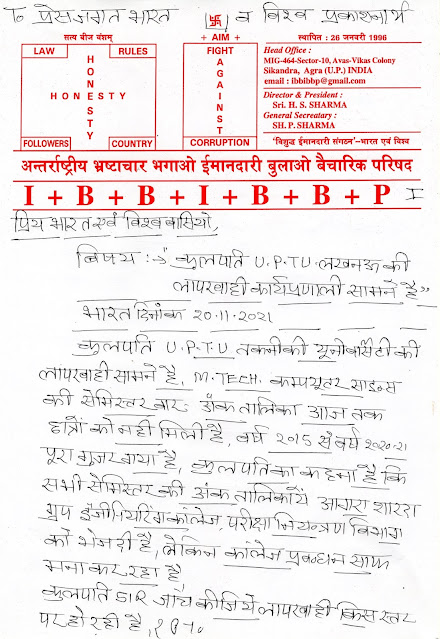 To प्रेस जगत भारत 卐 व विश्व प्रकाशनार्थ
सत्य बीज वंशम्
LAW RULES
HONESTY
HONESTY
FOLLOWERS COUNTRY
+ AIM +
FIGHT
AGAINST
CORRUPTION
स्थापित : 26 जनवरी 1996
Head Office :
MIG-464-Sector-10, Avas-Vikas Colony
Sikandra, Agra (U.P.) INDIA
email : ibbibbp@gmail.com
Director & President :
Sri. H. S. SHARMA
General Secreatary :
SH. P. SHARMA
'विशुद्ध ईमानदारी संगठन'-भारत एवं विश्व
अन्तर्राष्ट्रीय भ्रष्टाचार भगाओ ईमानदारी बुलाओ बैचारिक परिषद
I + B + B + I + B + B + P I
प्रिय भारत एवं विश्व वासियो,
विषय :-> कुलपति U.P.T.U. लखनऊ की
लापरवाही कार्यप्रणाली सामने है"
भारत दिनांक 20.11.2021
कुलपति U.P.T.U तकनीकी यूनीवर्सिटी की
लापरवाही सामने है, M.TECH. कम्प्यूटर साइन्स
की सेमिस्टर वार- अंक तालिका आज तक
छात्रों को नहीं मिली है, वर्ष 2015 से वर्ष 2020-21
पूरा गुजर गया है, कुलपति का कहना है कि
सभी सेमिस्टर की अंक तालिकायें आगरा शारदा
ग्रुप इंजीनियरिंग कालेज, परीक्षा नियन्त्रण विभाग
को भेज दी है, लेकिन कालेज प्रबन्धन साफ
मना कर रहा है,
कुलपति SIR जाँच कीजिये लापरवाही किस स्तर
पर हो रही है,